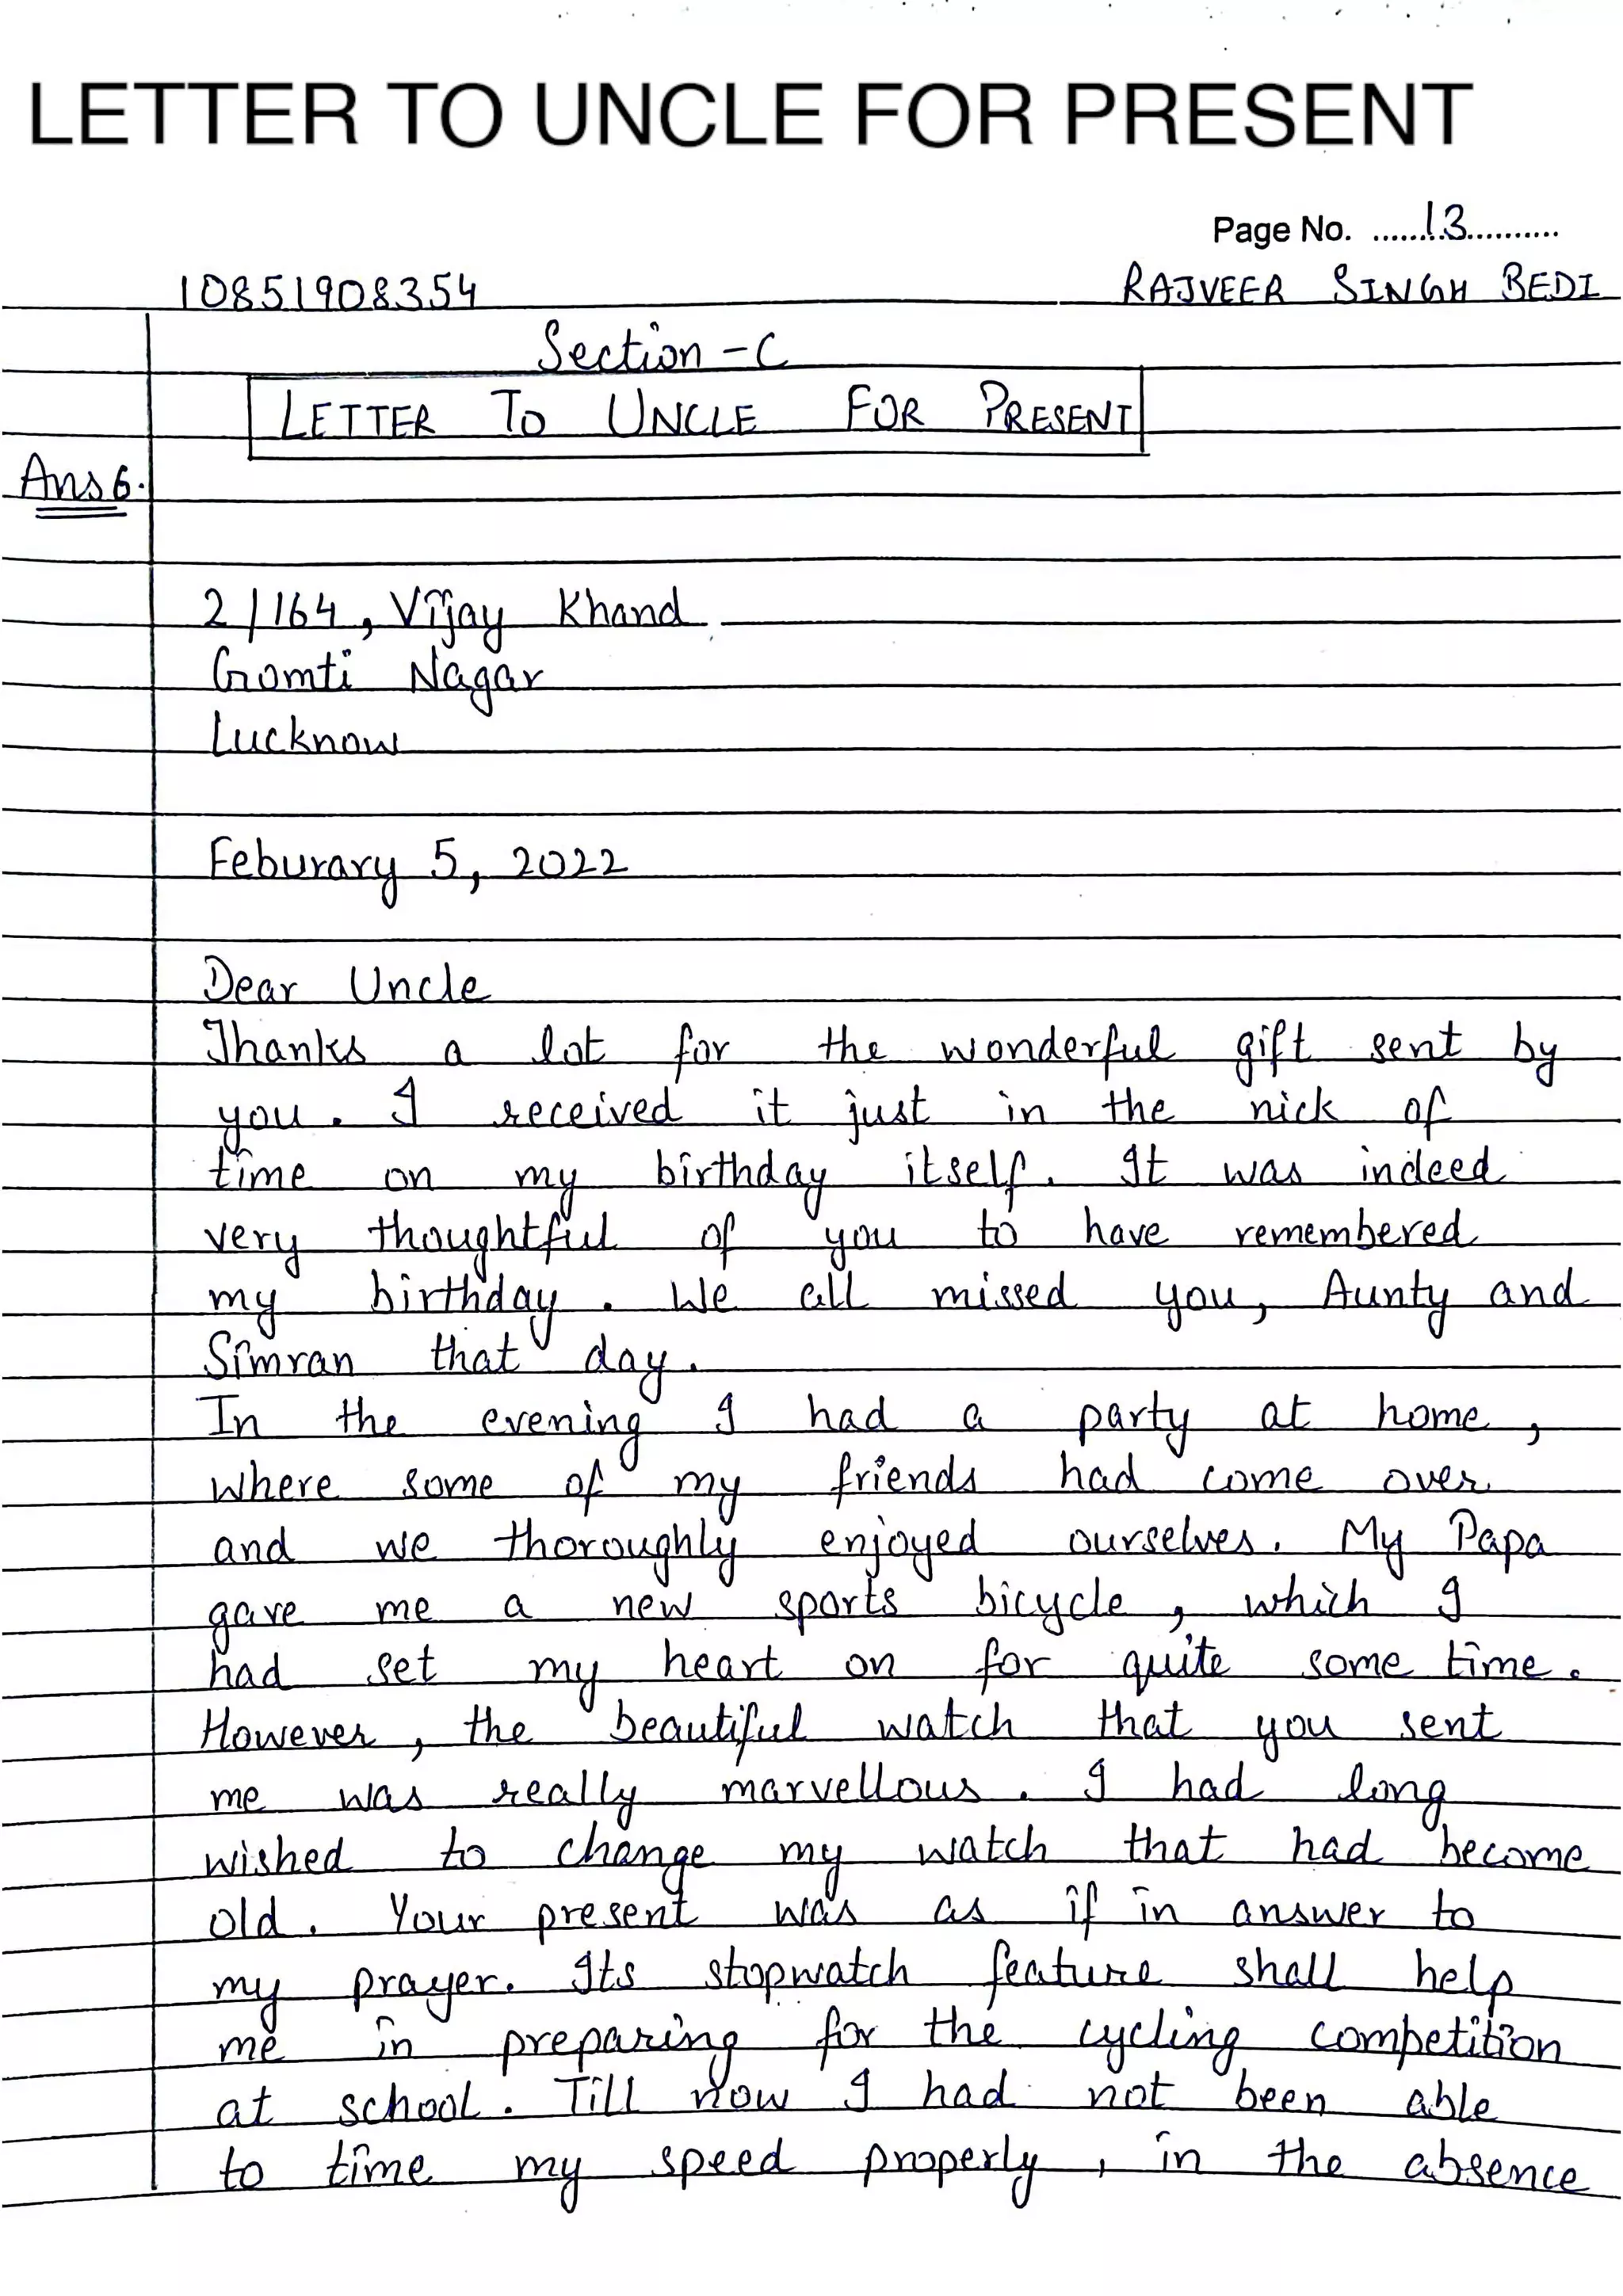 LETTER TO UNCLE FOR PRESENT
Page No. .......13...........
10851908354 RAJVEER SINGH BEDI
Section -C
LETTER TO UNCLE FOR PRESENT
Ans 6.
2/164, Vijay Khand
Gomti Nagar
Lucknow
Feburary 5, 2022
Dear Uncle
Thanks a lot for the wonderful gift sent by
you. I received it just in the nick of
time on my birthday itself. It was indeed
very thoughtful of you to have remembered
my birthday. We all missed you, Aunty and
Simran that day.
In the evening I had a party at home,
where some of my friends had come over
and we thoroughly enjoyed ourselves. My Papa
gave me a new sports bicycle, which I
had set my heart on for quite some time.
However, the beautiful watch that you sent
me was really marvellous. I had long
wished to change my watch that had become
old. Your present was as if in answer to
my prayer. Its stopwatch feature shall help
me in preparing for the cycling competition
at school. Till now I had not been able
to time my speed properly, in the absence